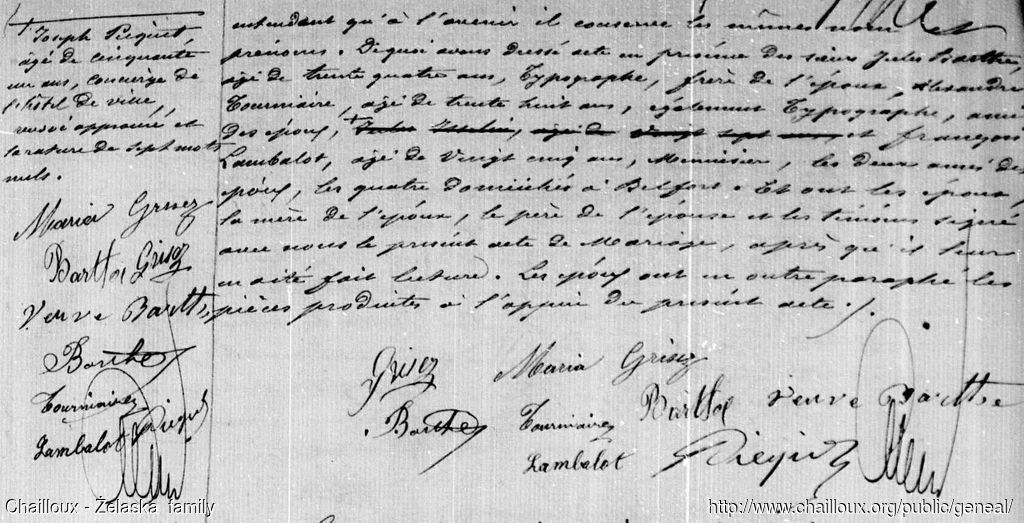 + Joseph Piequet,
âgé de cinquante
un ans, concierge de
l'hôtel de ville,
renvoi approuvé et
la rature de sept mots
nuls.
Maria Grisez
Barthe Grisez
Veuve Barthe
Barthe
Tourniaire
Lambalot Piequet
entendant qu'à l'avenir il conserve les mêmes noms et
prénoms. De quoi avons dressé acte en présence des sieurs Jules Barthe,
âgé de trente quatre ans, Typographe, frère de l'époux, Alexandre
Tourniaire, âgé de trente huit ans, également Typographe, ami
des époux, + Jules âgé de vingt sept ans, et françois
Lambalot, âgé de vingt cinq ans, Menuisier, les deux amis des
époux, les quatre domiciliés à Belfort. Et ont les époux,
la mère de l'époux, le père de l'épouse et les témoins signé
avec nous le présent acte de Mariage, après qu'il leur
en a été fait lecture. Les époux ont en outre paraphé les
pièces produites à l'appui du présent acte. /.
Grisez Maria Grisez
Barthe Tourniaire Barthe Veuve Barthe
Lambalot Piequet
Chailloux - Želaska family
http://www.chailloux.org/public/geneal/